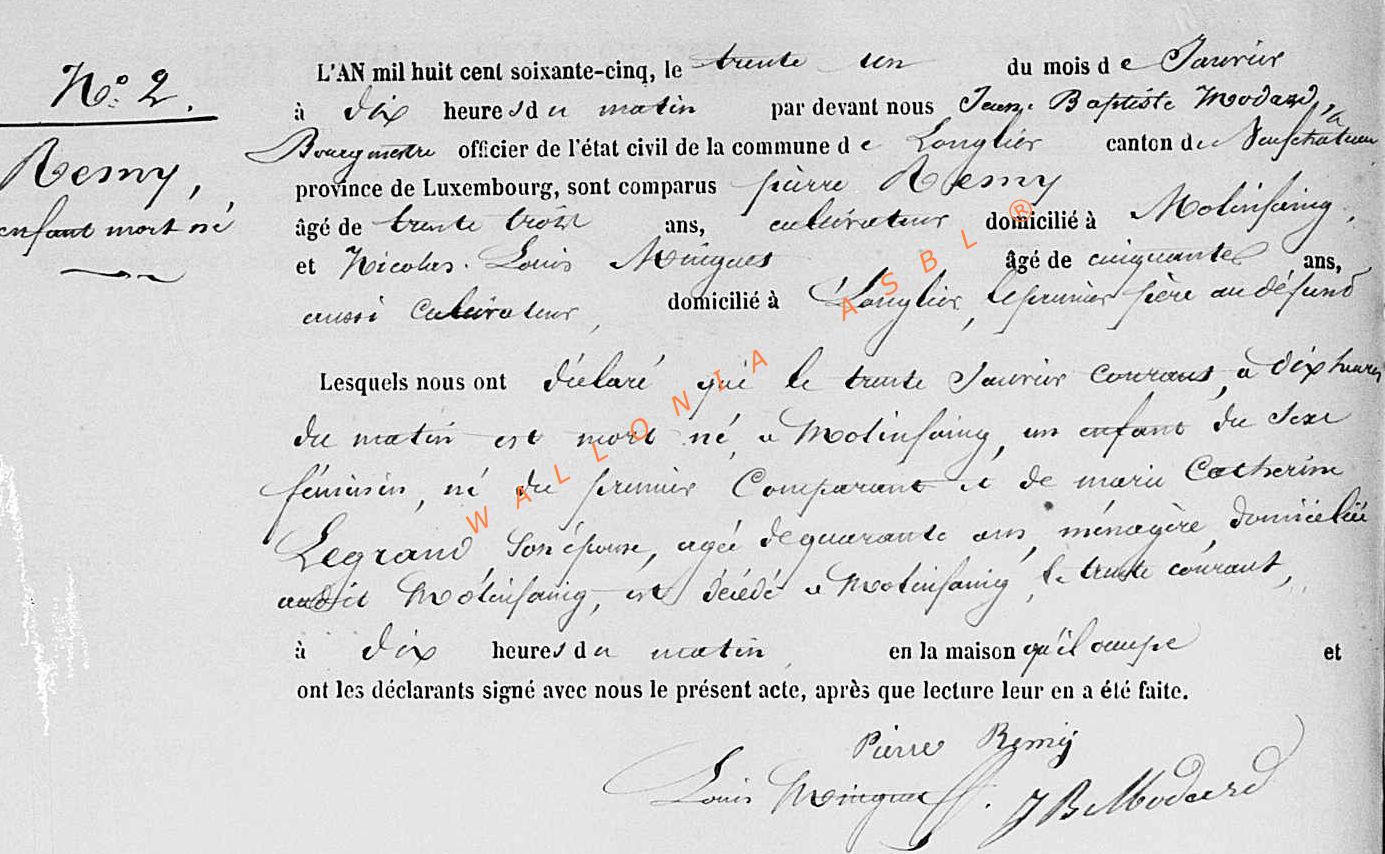 N.° 2.
Remy,
enfant mort né
L'AN mil huit cent soixante-cinq, le trente un du mois de Janvier
à dix heures du matin par devant nous Jean Baptiste Modard,
Bourgmestre officier de l'état civil de la commune de Longlier canton de Neufchateau
province de Luxembourg, sont comparus pierre Remy
âgé de trente trois ans, cultivateur domicilié à Molinfaing,
et Nicolas Louis Mingues âgé de cinquante ans,
aussi cultivateur, domicilié à Longlier, le premier père au défunt
Lesquels nous ont déclaré que le trente Janvier courant, a dix heures
du matin est mort né a Molinfaing, un enfant du sexe
féminin, né du premier Comparant et de marie Catherine
Legrand, son épouse, agée de quarante ans, ménagère, domiciliée
audit Molinfaing, est décédé a Molinfaing, le trente courant,
à dix heures du matin, en la maison qu'il occupe et
ont les déclarants signé avec nous le présent acte, après que lecture leur en a été faite.
Pierre Remy
Louis Mingues
J B Modard
WALLONIA ASBL ®